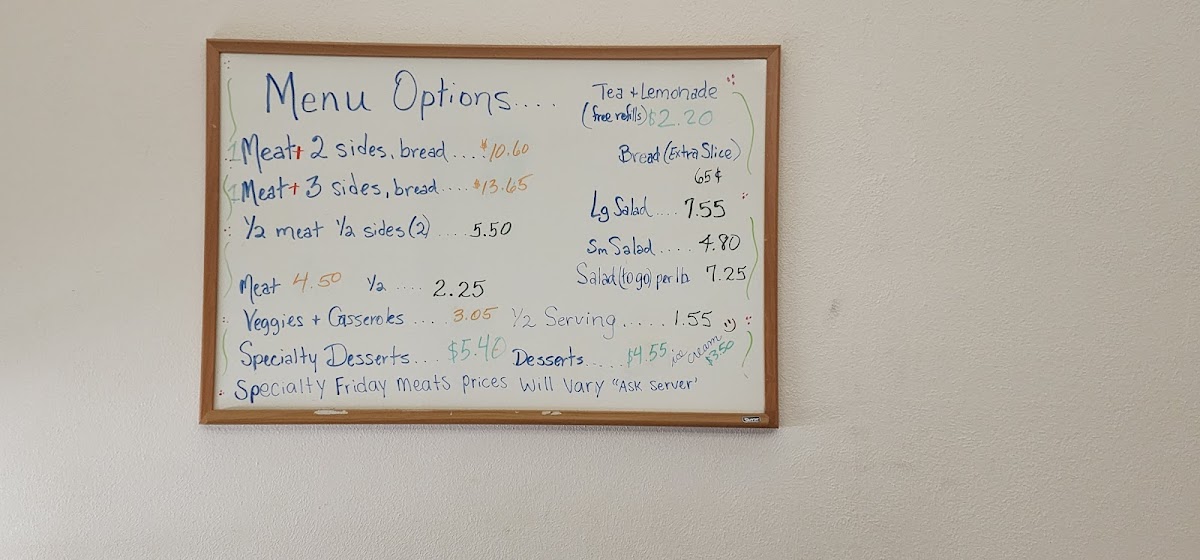 Menu Options....
1 Meat + 2 sides, bread....$10.60
1 Meat + 3 sides, bread....$13.65
1/2 meat 1/2 sides (2) ....5.50
Meat 4.50 1/2 .... 2.25
Veggies + Casseroles .... 3.05 1/2 Serving..... 1.55
Specialty Desserts... $5.40 Desserts..... $4.55 ice cream $3.50
Specialty Friday meats prices will vary "Ask server'
Tea + Lemonade
(free refills) $2.20
Bread (Extra Slice)
65¢
Lg Salad.... 7.55
Sm Salad.... 4.80
Salad (to go) per lb 7.25